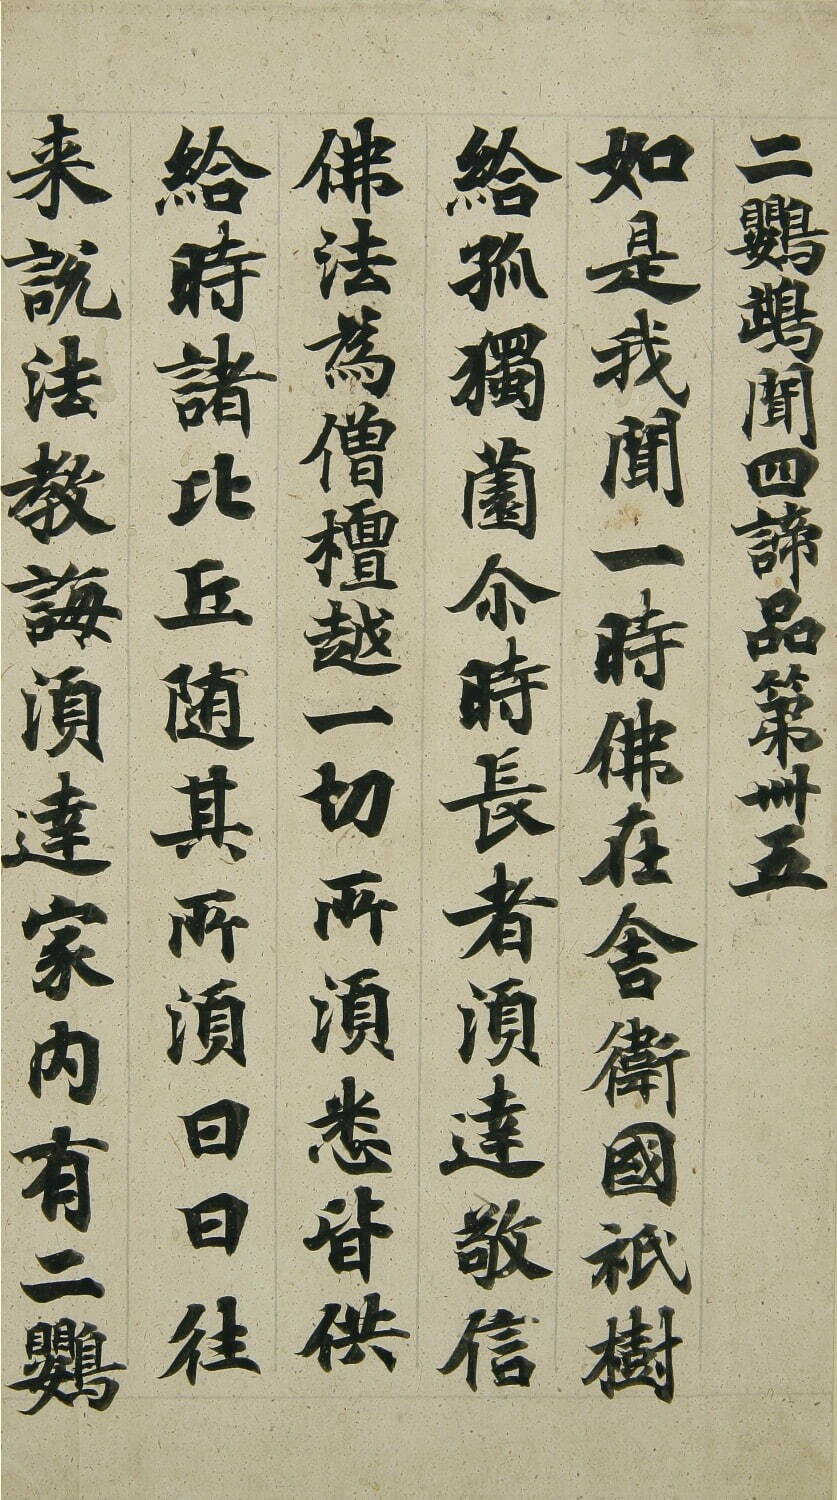 二鸚鵡聞四諦品第卌五
如是我聞一時佛在舍衛國祇樹
給孤獨薗尒時長者湏達敬信
佛法為僧檀越一切所湏悉皆供
給時諸比丘随其所湏日日往
来說法教誨湏達家內有二鸚